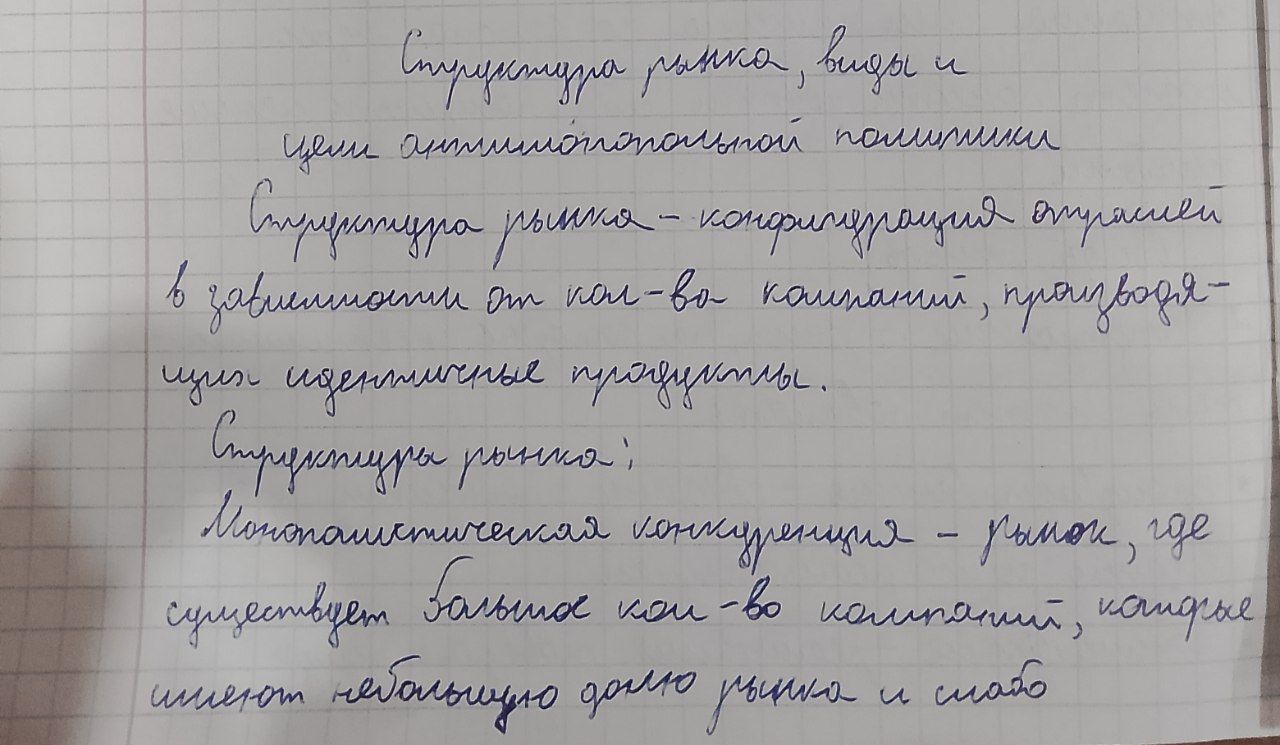 Структура рынка, виды и
цели антимонопольной политики
Структура рынка – конфигурация отраслей
в зависимости от кол-ва компаний, производя-
щих идентичные продукты.
Структуры рынка:
Монополистическая конкуренция – рынок, где
существует большое кол-во компаний, которые
имеют небольшую долю рынка и слабо